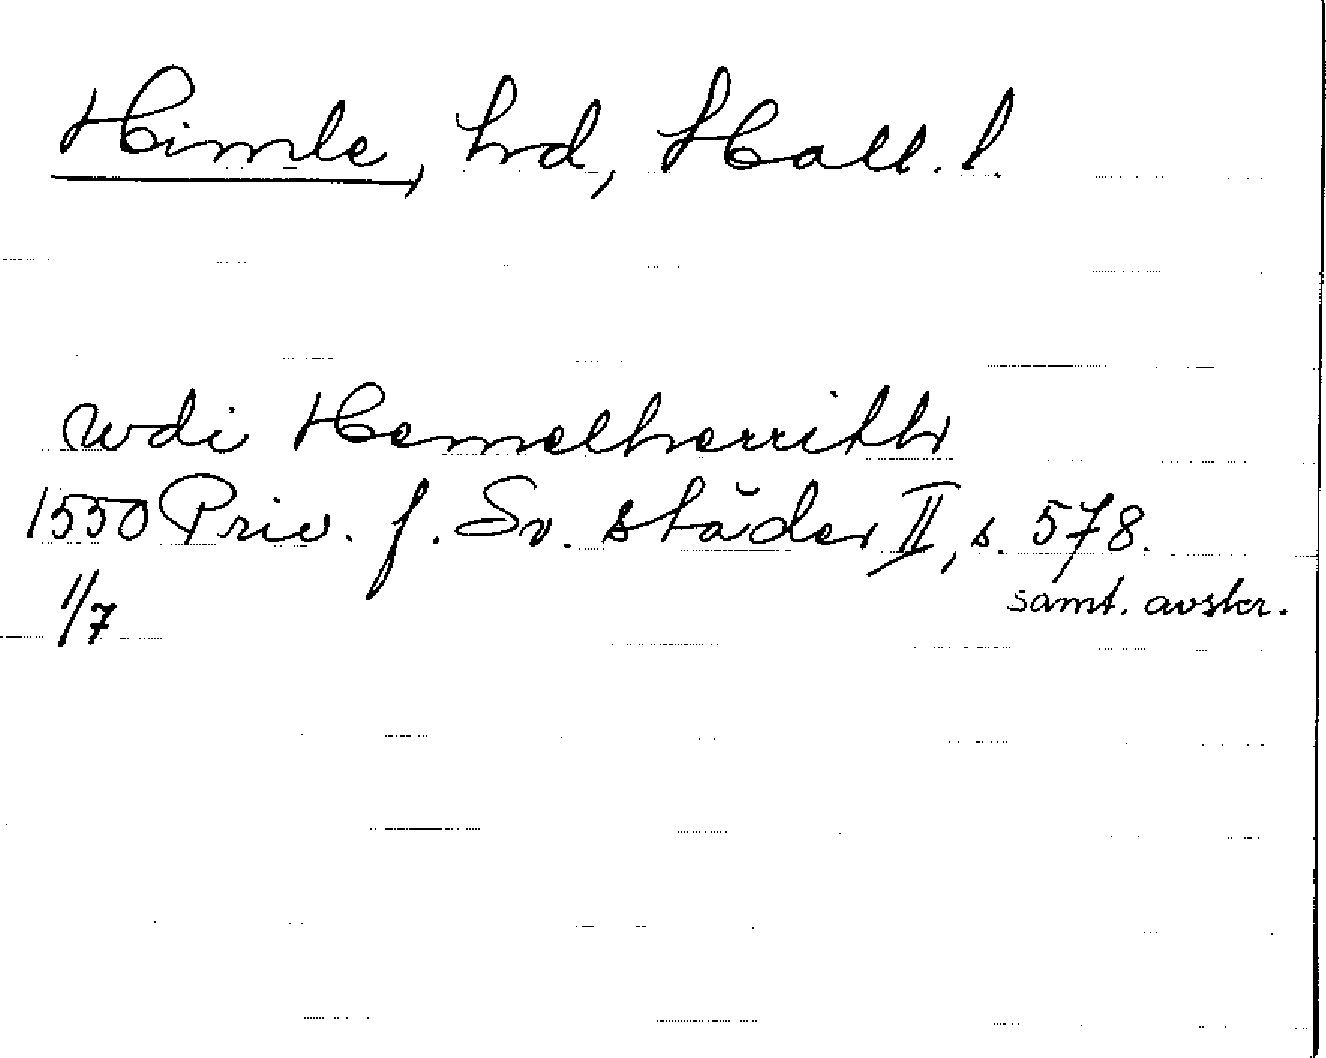 Himle, hrd, Hall. l.
wdi Hemelherrithr
1550 Priv. f. Sv. städer II, s. 578.
1/7
samt. avskr.